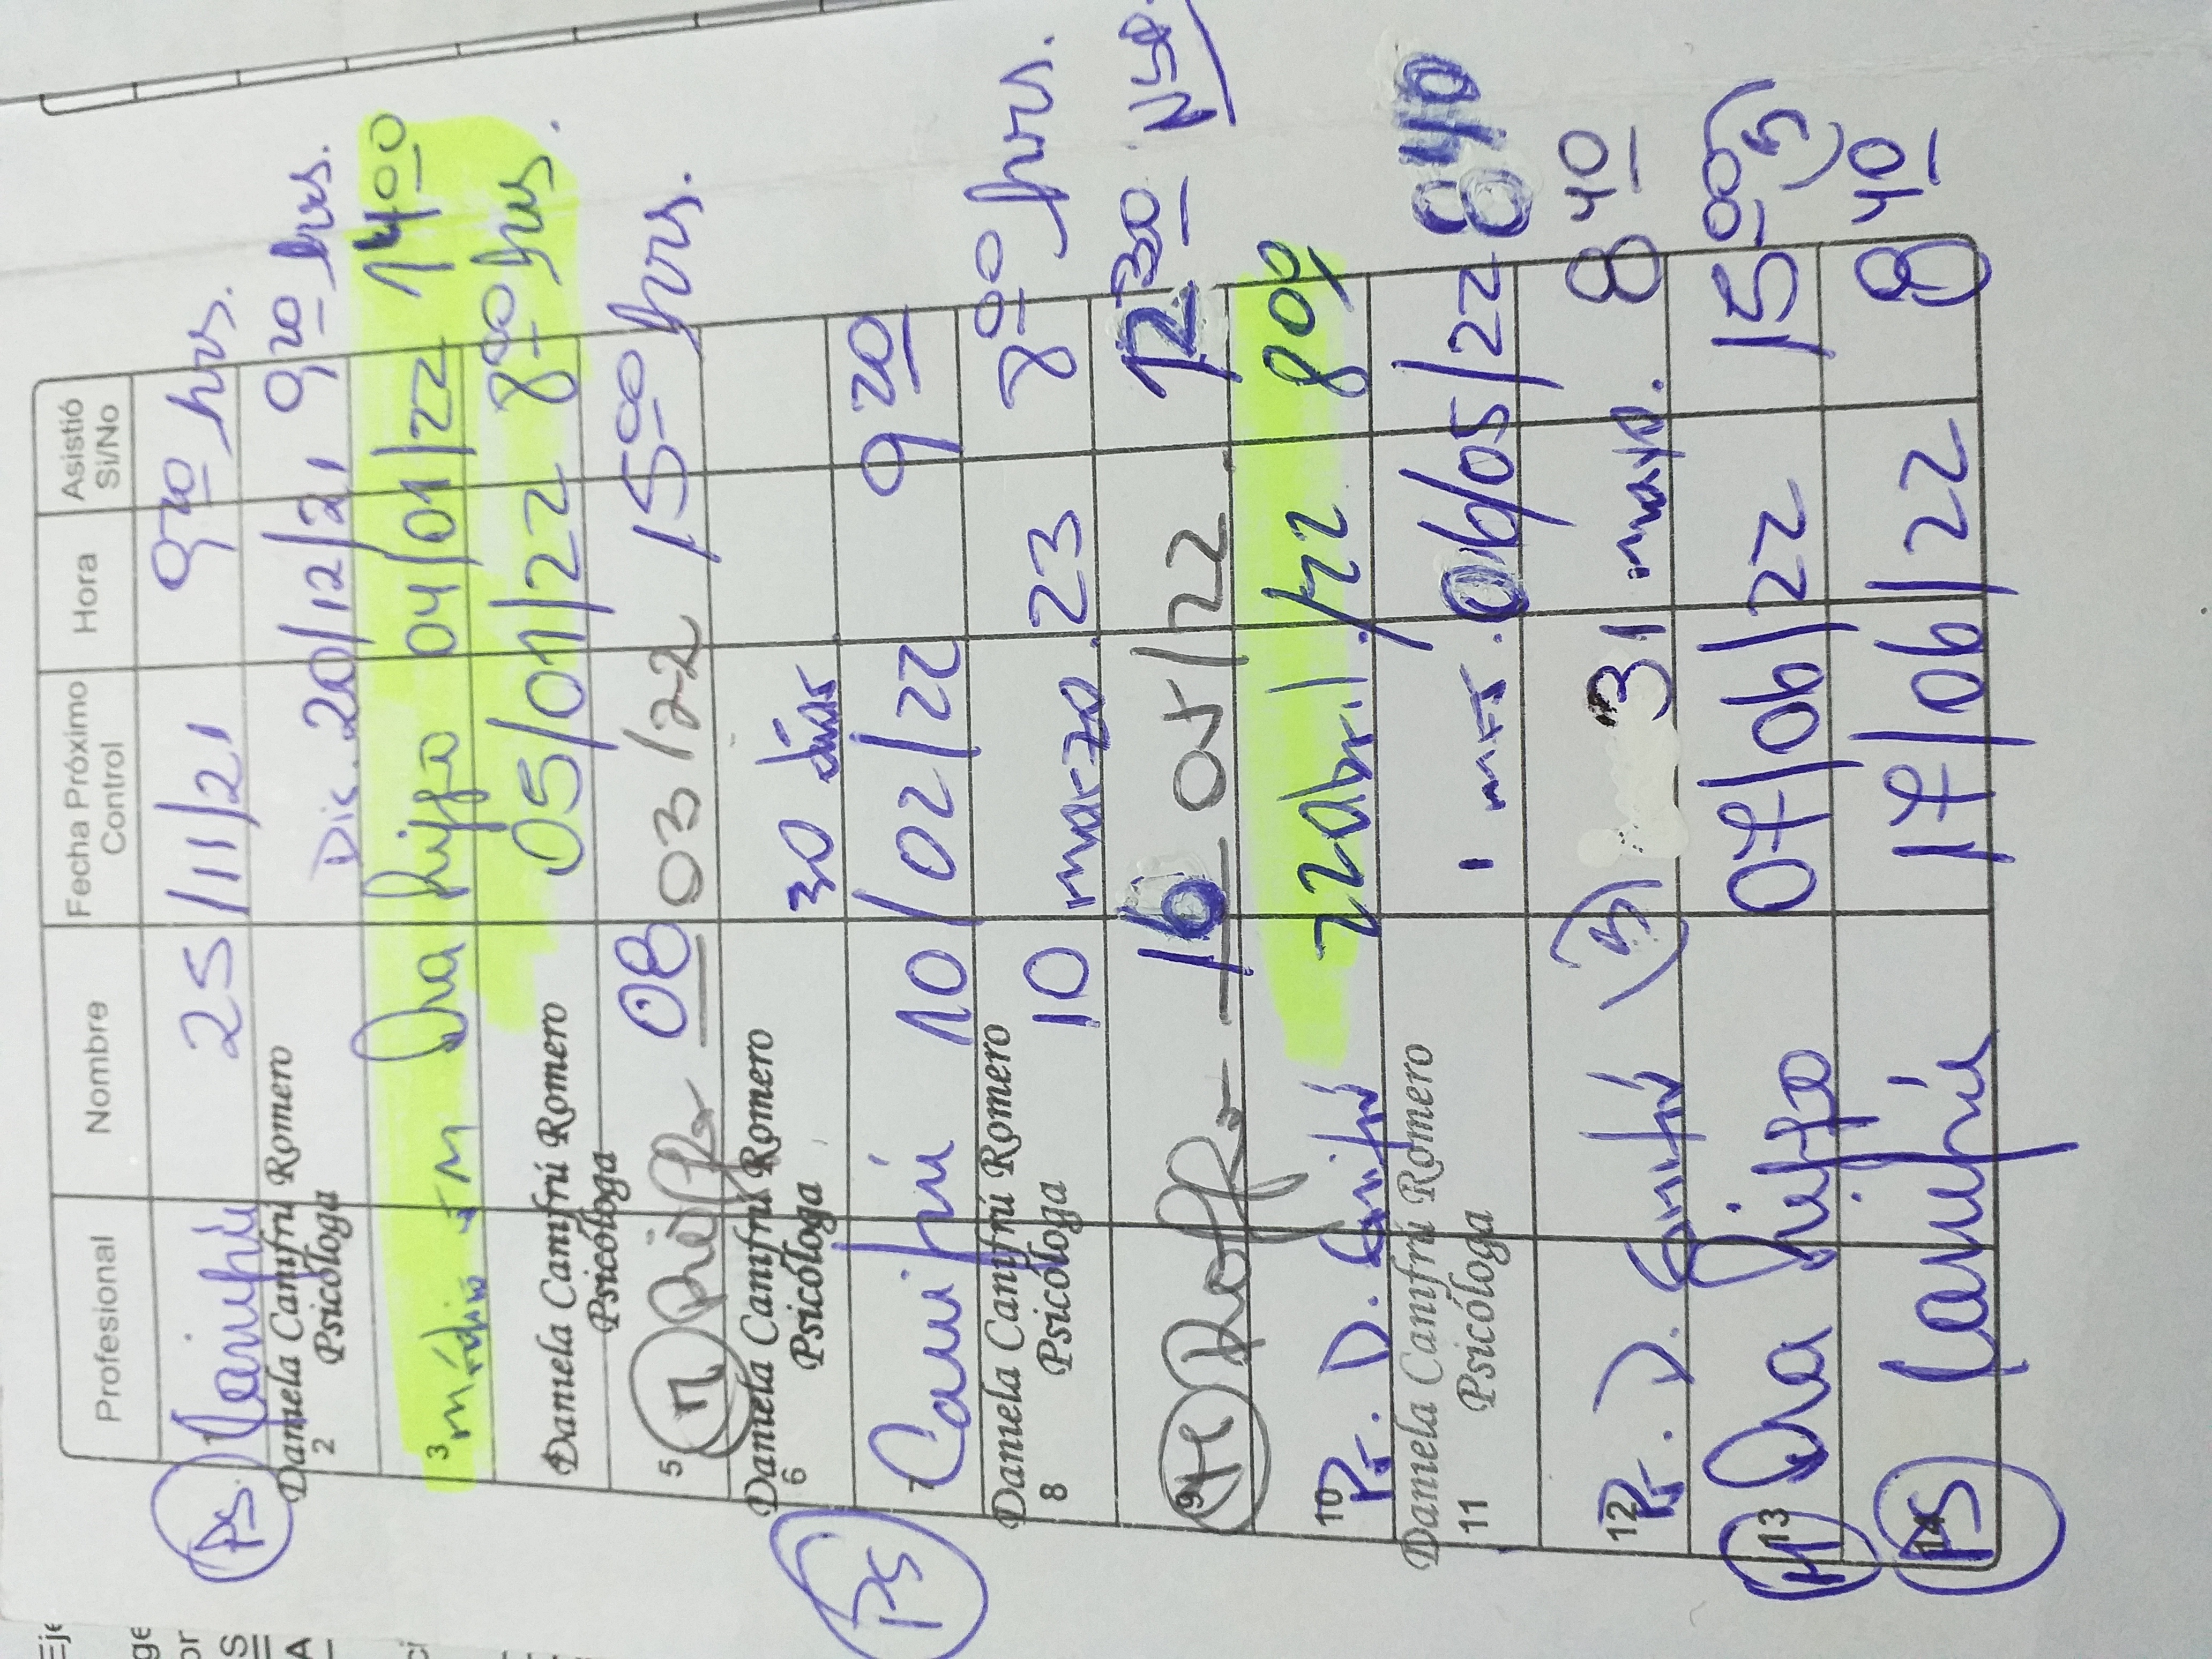 Profesional Nombre Fecha Próximo Control Hora Asistió Si/No
Ps. Canifrú 25/11/21 9 20 hrs.
Daniela Canifrú Romero
2 Psicóloga
Dic. 20/12/21 9 20 hrs.
3 médico Dra Riffo 04/01/22 14 00
05/01/22 8 00 hrs.
Daniela Canifrú Romero
Psicóloga
5 M Riffo 08 03/22 15 00 hrs.
Daniela Canifrú Romero
6 Psicóloga
30 días
PS Canifrú 10/02/22 9 20
Daniela Canifrú Romero
8 Psicóloga
10 marzo. 23 8 00 hrs.
9 Riffo 16 05/22 12 30 NSP.
10 Ps. D. Canifrú 22 abril./22 8 00
Daniela Canifrú Romero
11 Psicóloga
1 mes. 06/05/22 8 40
12 Ps. D. Canifrú 31 mayo. 8 40
M 13 Dra Riffo 07/06/22 15 00
PS 14 Canifrú 17/06/22 8 40